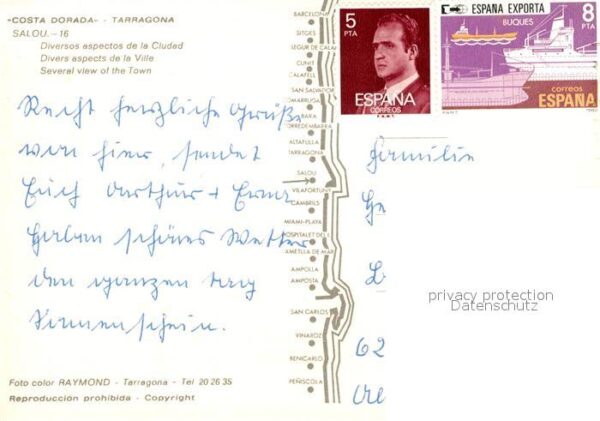 "COSTA DORADA" - TARRAGONA
SALOU.-16
Diversos aspectos de la Ciudad
Divers aspects de la Ville
Several view of the Town
Recht herzliche Grüße
von hier, sendet
Euch Arthur + Erna
Haben schönes Wetter
den ganzen Tag
Sonnenschein.
Foto color RAYMOND - Tarragona - Tel 20 26 35
Reproducción prohibida - Copyright
BARCELONA
SITGES
SEGUR DE CALAF
CUNIT
CALAFELL
SAN SALVADOR
OMARRUGA
BARA
ORREDEMBARRA
ALTAFULLA
TARRAGONA
SALOU
VILAFORTUNY
CAMBRILS
MIAMI-PLAYA
HOSPITALET DEL I
AMETLLA DE MAR
AMPOLLA
AMPOSTA
SAN CARLOS
VINAROZ
BENICARLO
PEÑISCOLA
5
PTA
ESPAÑA
CORREOS
F.N.M.T.
ESPAÑA EXPORTA
BUQUES
8
PTA
correos
ESPAÑA
Familie
62
privacy protection
Datenschutz